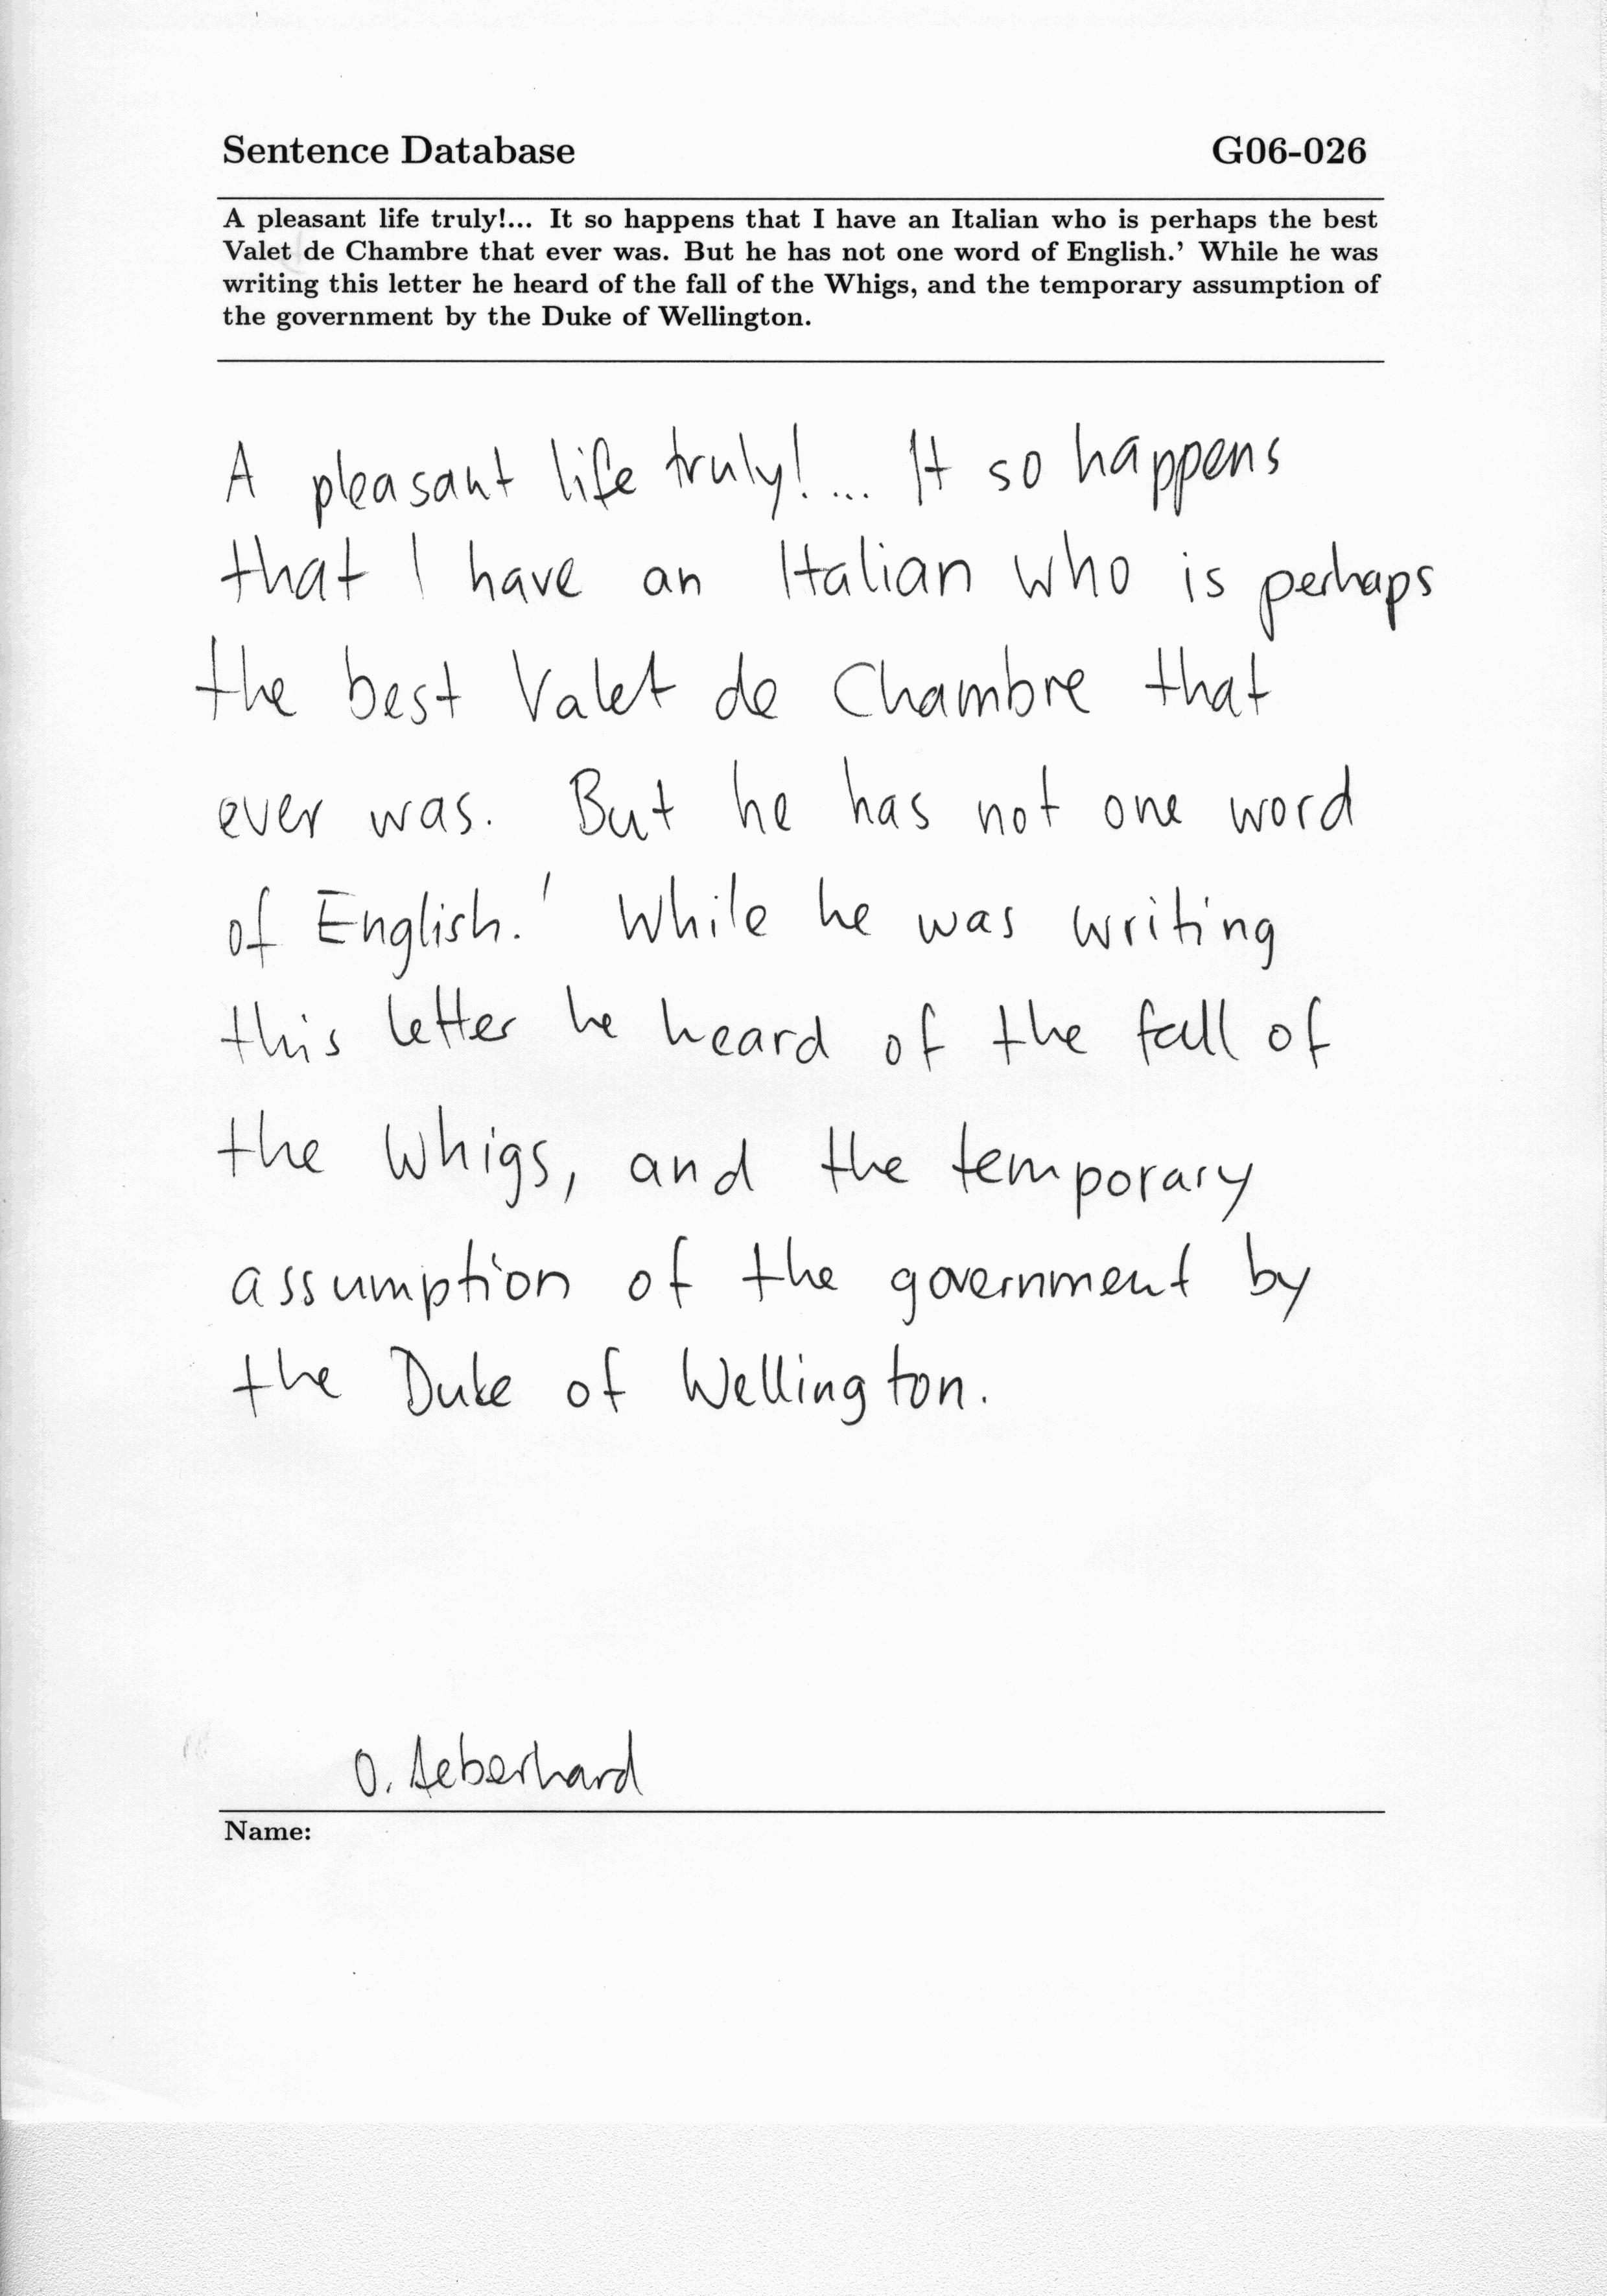 Sentence Database G06-026
A pleasant life truly!... It so happens that I have an Italian who is perhaps the best
Valet de Chambre that ever was. But he has not one word of English.' While he was
writing this letter he heard of the fall of the Whigs, and the temporary assumption of
the government by the Duke of Wellington.
A pleasant life truly!... It so happens
that I have an Italian who is perhaps
the best Valet de Chambre that
ever was. But he has not one word
of English.' While he was writing
this letter he heard of the fall of
the Whigs, and the temporary
assumption of the government by
the Duke of Wellington.
O. Aeberhard
Name: